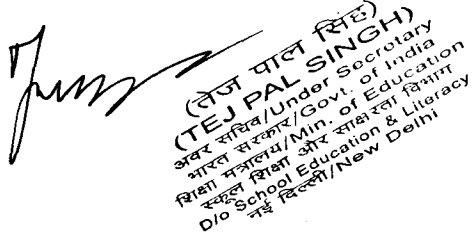 (तेज पाल सिंह)
(TEJ PAL SINGH)
अवर सचिव/Under Secretary
भारत सरकार/Govt. of India
शिक्षा मंत्रालय/Min. of Education
स्कूल शिक्षा और साक्षरता विभाग
D/o School Education & Literacy
नई दिल्ली/New Delhi